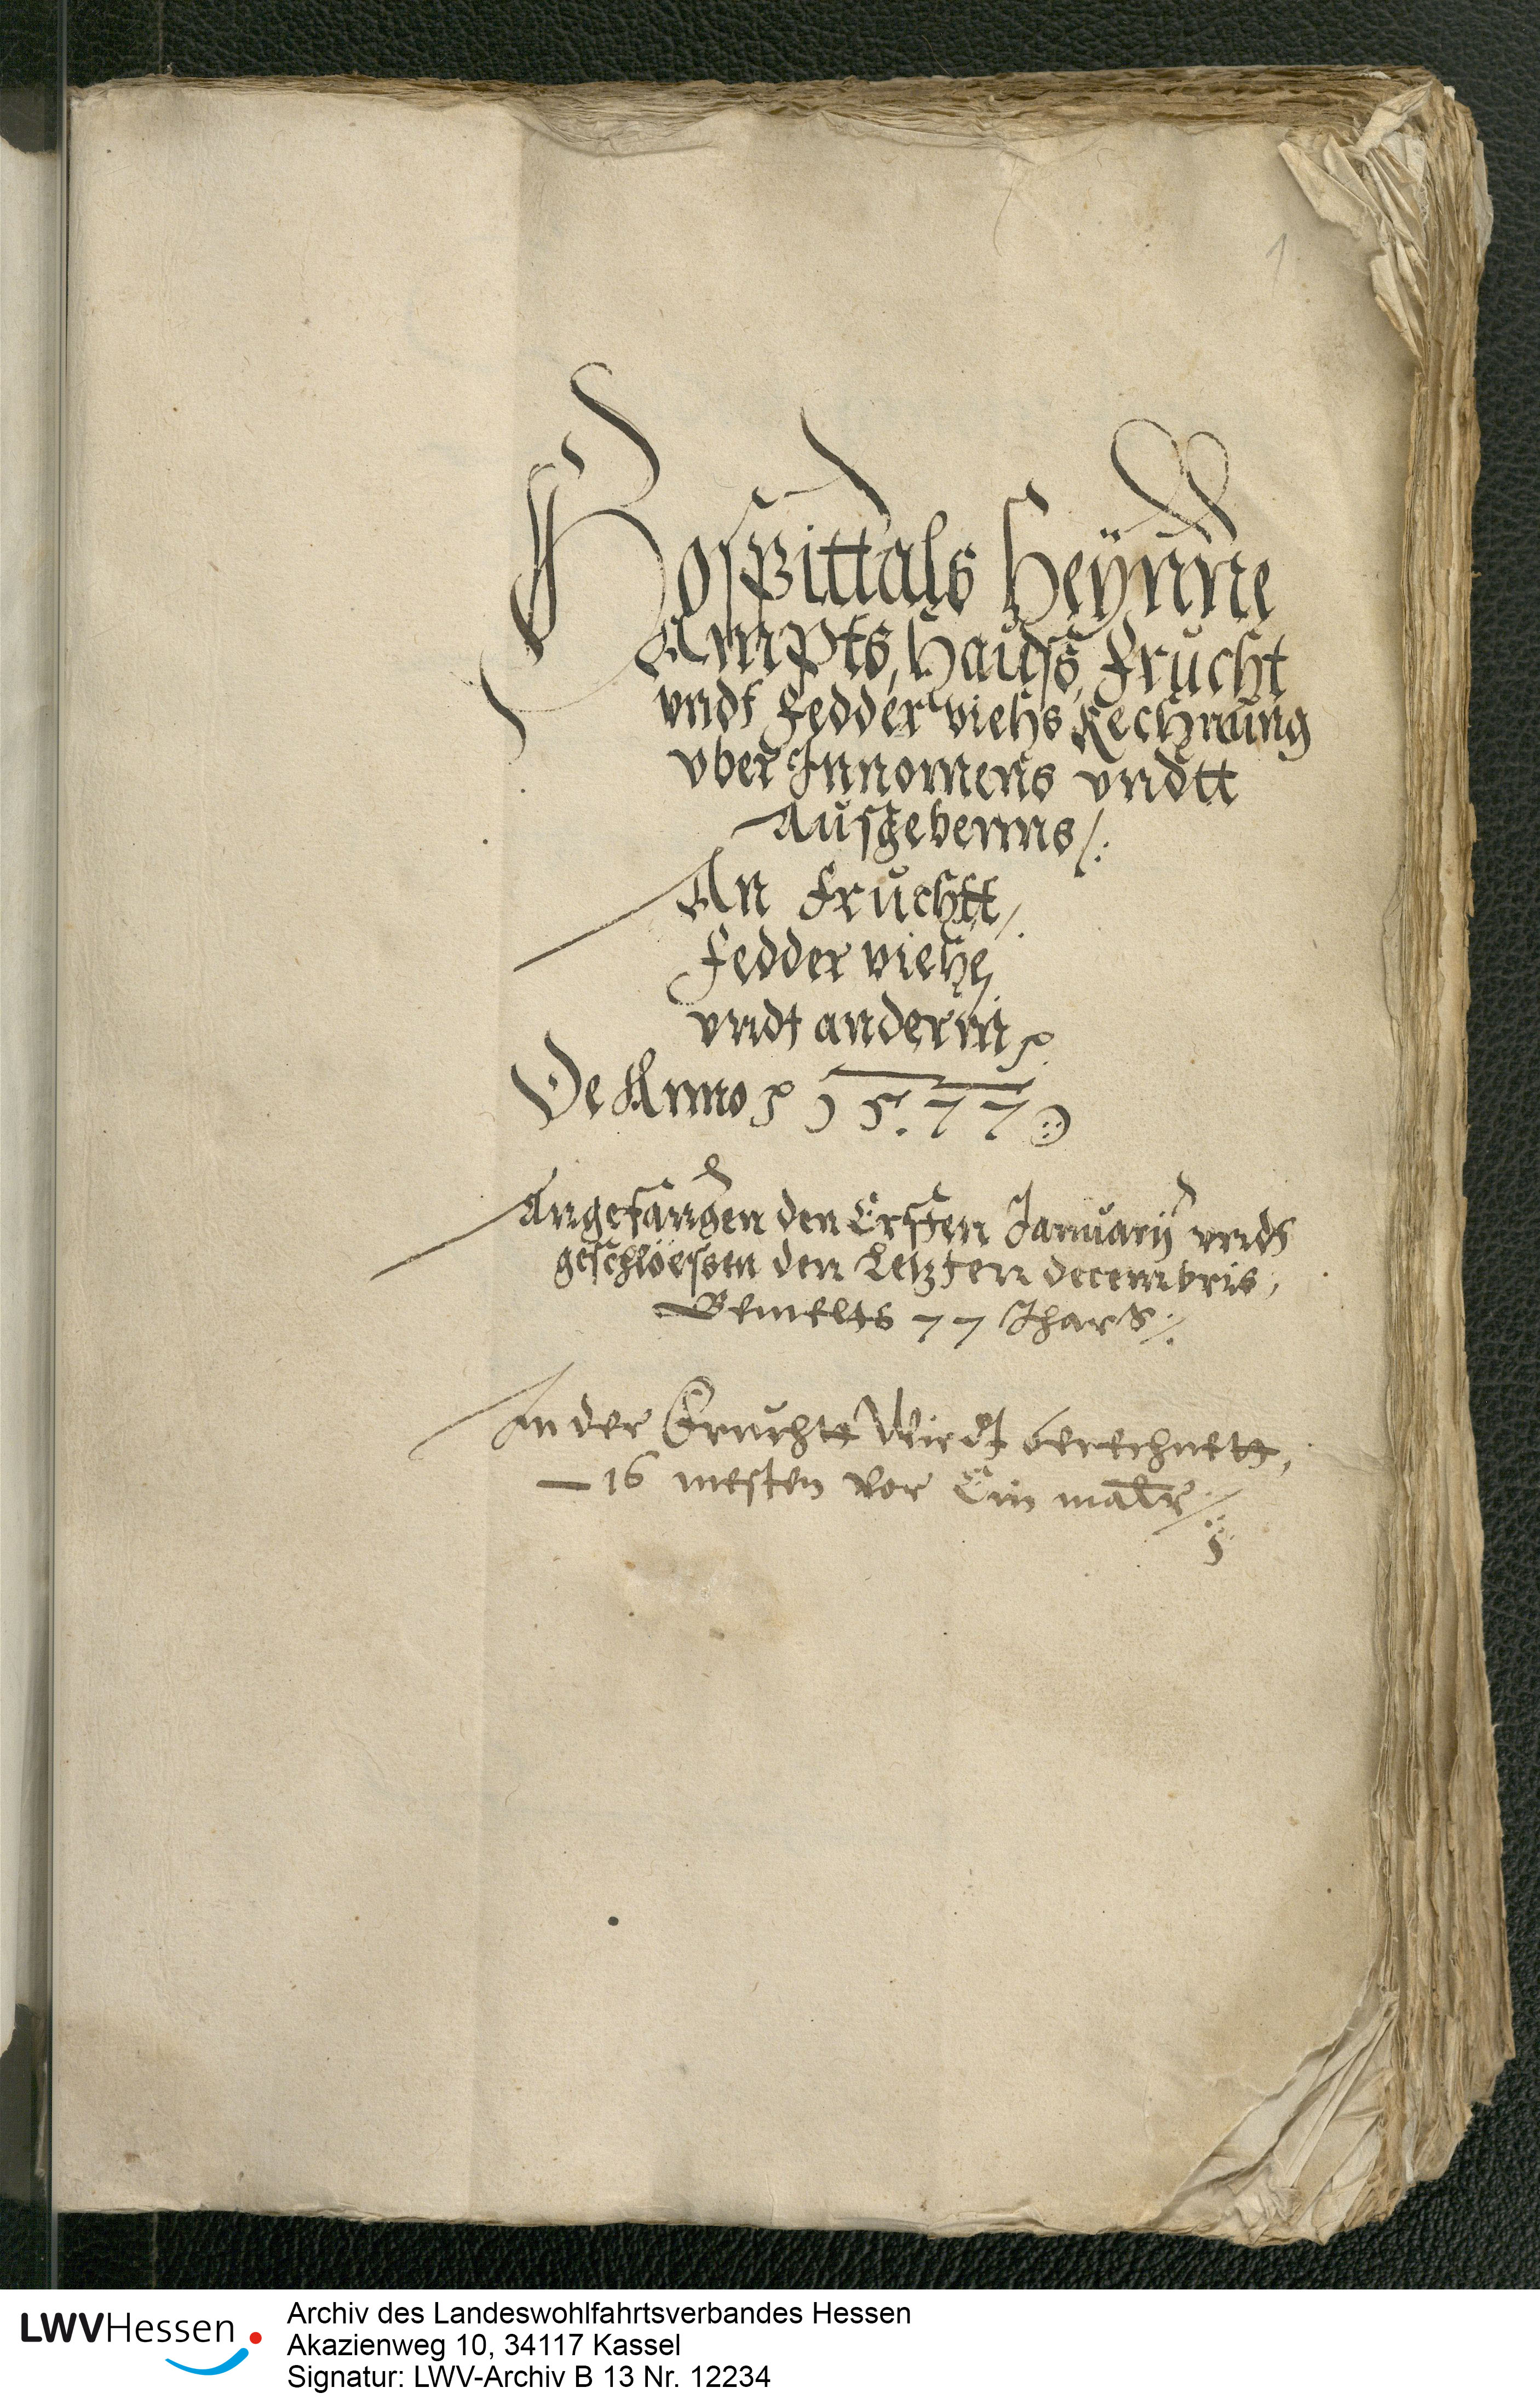 1
Hospittals Heÿnne
Ampts, Hauss, Frucht
vndt Fedder viehs Rechnung
vber Innomens vndtt
Ausgebenns /:
An Fruchtt /.
Fedder viehe,
vndt anderm
De Anno 1577
Angefangen den Ersten Januarÿ vndt
geschloessen den Letzten decembris,
Bemelts 77 Jhars /:
An der Fruchtt Wirdt berechnett,
16 mesten vor Ein malr
LWVHessen
Archiv des Landeswohlfahrtsverbandes Hessen
Akazienweg 10, 34117 Kassel
Signatur: LWV-Archiv B 13 Nr. 12234